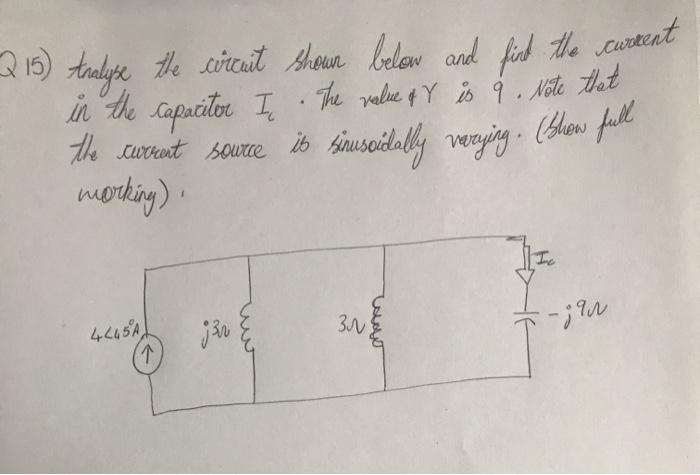 Q 15) Analyse the circuit shown below and find the current
in the capacitor Ic . The value of Y is 9 . Note that
the current source is sinusoidally varying. (Show full
working).
Ic
4∠45°A
j3Ω
3Ω
-j9Ω